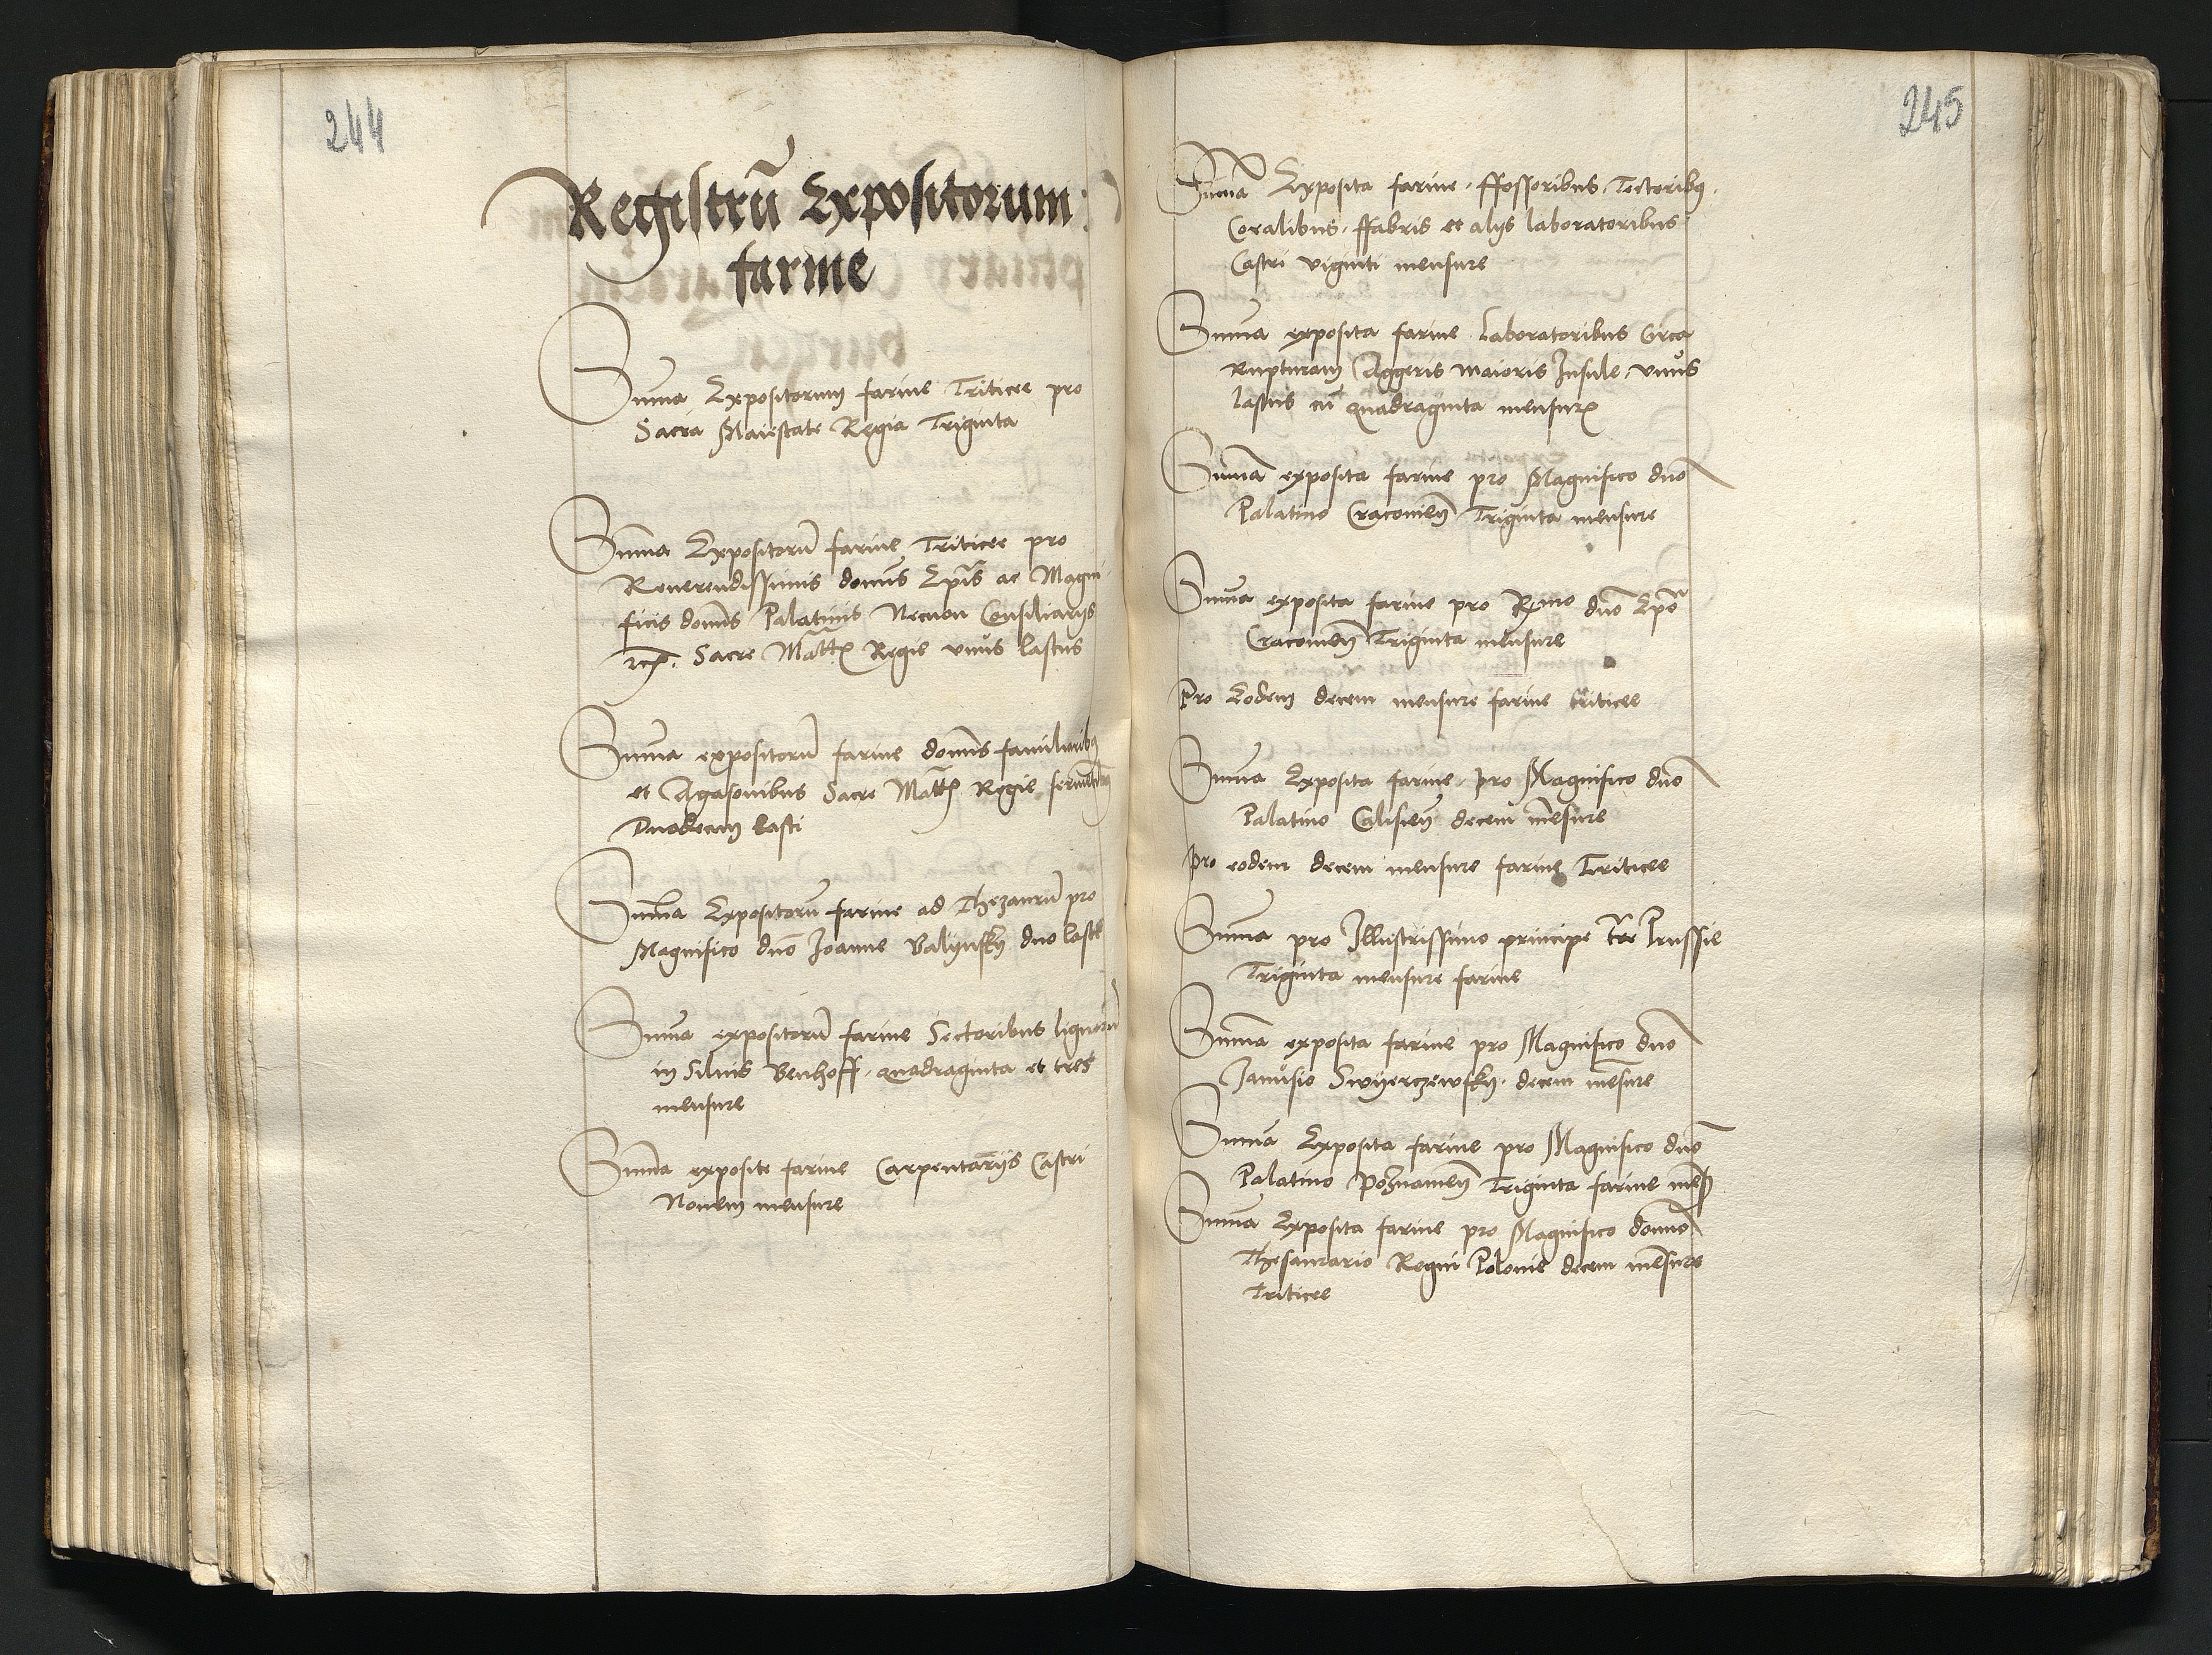 244
Registrū Expositorum
farine
Suma Expositorum farine Triticee pro
Sacra Maiestate Regia Triginta
Sum̄a Expositorū farine Triticee pro
Reuerendissimis domīs Ep̄is ac Magni
ficis domīs Palatinis Necnon Consiliarijs
Sacre Mattis Regie vnus lastus
Suma expositorū farine domīs familiaribus
et Agasonibus Sacre Mattis Regie
Duodecim lasti
Summa Expositorū farine ad Thezaurū pro
Magnifico dūo Joanne Balijnsky duo laste
Suma expositorū farine Sectoribus lignorū
in Siluis Benhoff quadraginta et tres
mensure
Sum̄a exposite farine Carpentarijs Castri
Nouem mensure
245
Sum̄a Exposita farine ffossoribus Tectoribus
Coralibus ffabris et alijs laboratoribus
Castri viginti mensure
Suma exposita farine Laboratoribus Circa
Rupturam Aggeris maioris Insule vnus
lastus cū quadraginta mensuris
Sumā exposita farine pro Magnifico dno
Palatino Cracouien Triginta mensure
Suma exposita farine pro Rmo dno Epo
Cracouien Triginta mensure
Pro Eodem decem mensure farine triticee
Suma Exposita farine pro Magnifico dno
Palatino Calisien decem mēsure
pro eodem decem mensure farine Triticee
Suma pro Illustrissimo principe Prussie
Triginta mensure farine
Sum̄a exposita farine pro Magnifico dno
Janusio Swyerczewsky decem mēsure
Suma Exposita farine pro Magnifico dno
Palatino Poznanien Triginta farine mēs
Suma Exposita farine pro Magnifico domno
Thesaurario Regni Polonie decem mēsure
Triticee